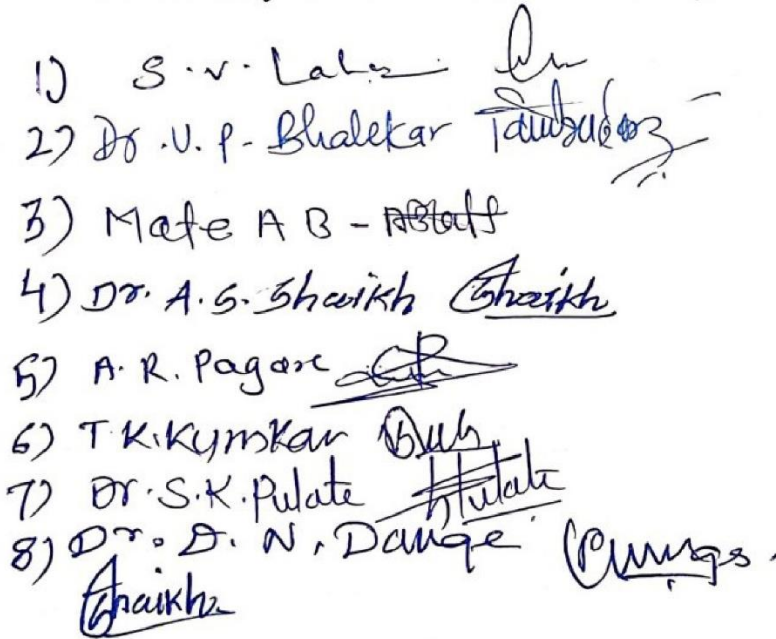 1) S.V. Lahe
2) Dr. U.P. Bhalekar
3) Mate A B -
4) Dr. A.S. Shaikh Shaikh
5) A.R. Pagare
6) T K. Kumkar
7) Dr. S.K. Pulate SPulate
8) Dr. D. N. Dange
Shaikh